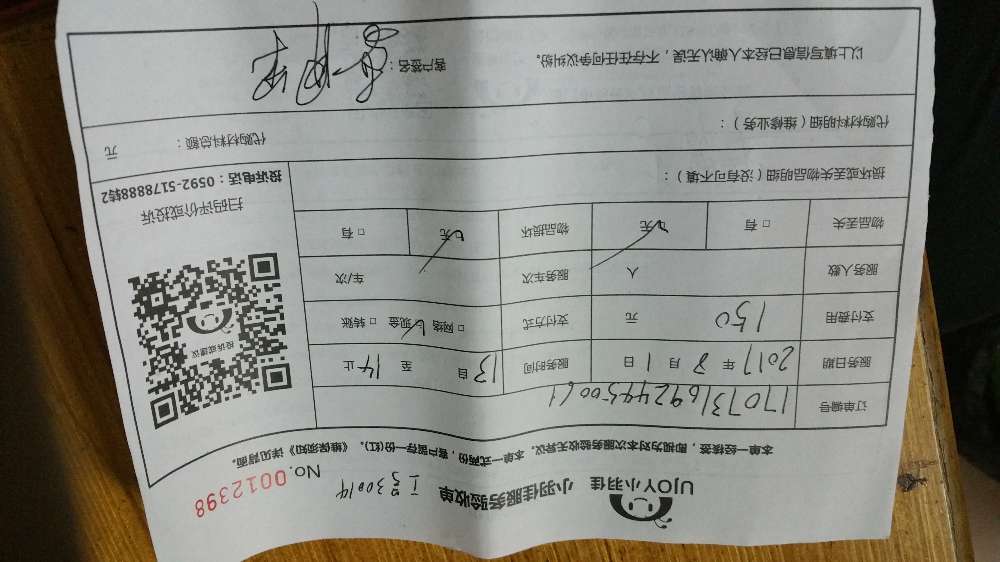 UJOY小羽佳 小羽佳服务验收单 工号30014 No. 0012398
本单，经续签，即视为对本次服务验收无异议。本单一式两份，客户留存一份(红)。《维保须知》详见背面。
订单编号 1707316924450061
服务日期 2017年8月1日 服务时间 13自 至 14止
支付费用 150 元 支付方式 □网络 □现金 □转账
服务人数 人 服务车次 车/次
物品丢失 □有 □无 物品损坏 □无 □有
投诉或建议
扫码评价或投诉
投诉电话：0592-5178888转2
损坏或丢失物品明细（没有可不填）：
代购材料明细（维修业务）： 代购材料总额： 元
以上填写信息已经本人确认无误，不存在任何争议纠纷。 客户签名：